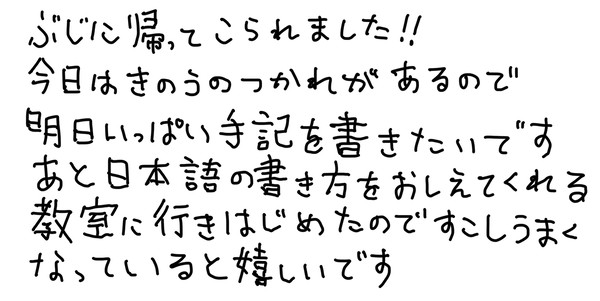 ぶじに帰ってこられました!!
今日はきのうのつかれがあるので
明日いっぱい手記を書きたいです
あと日本語の書き方をおしえてくれる
教室に行きはじめたのですこしうまく
なっていると嬉しいです